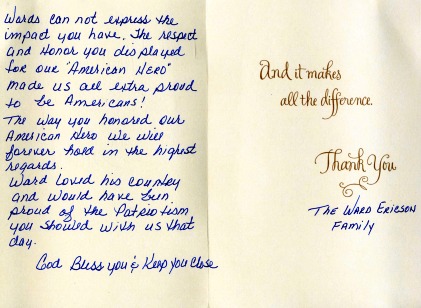 Words can not express the
impact you have. The respect
and Honor you displayed
for our "American Hero"
made us all extra proud
to be Americans!
The way you honored our
American Hero we will
forever hold in the highest
regards.
Ward Loved his country
and would have been
proud of the Patriotism
you showed with us that
day.
God Bless you & Keep you close
And it makes
all the difference.
Thank You
The Ward Ericson
Family